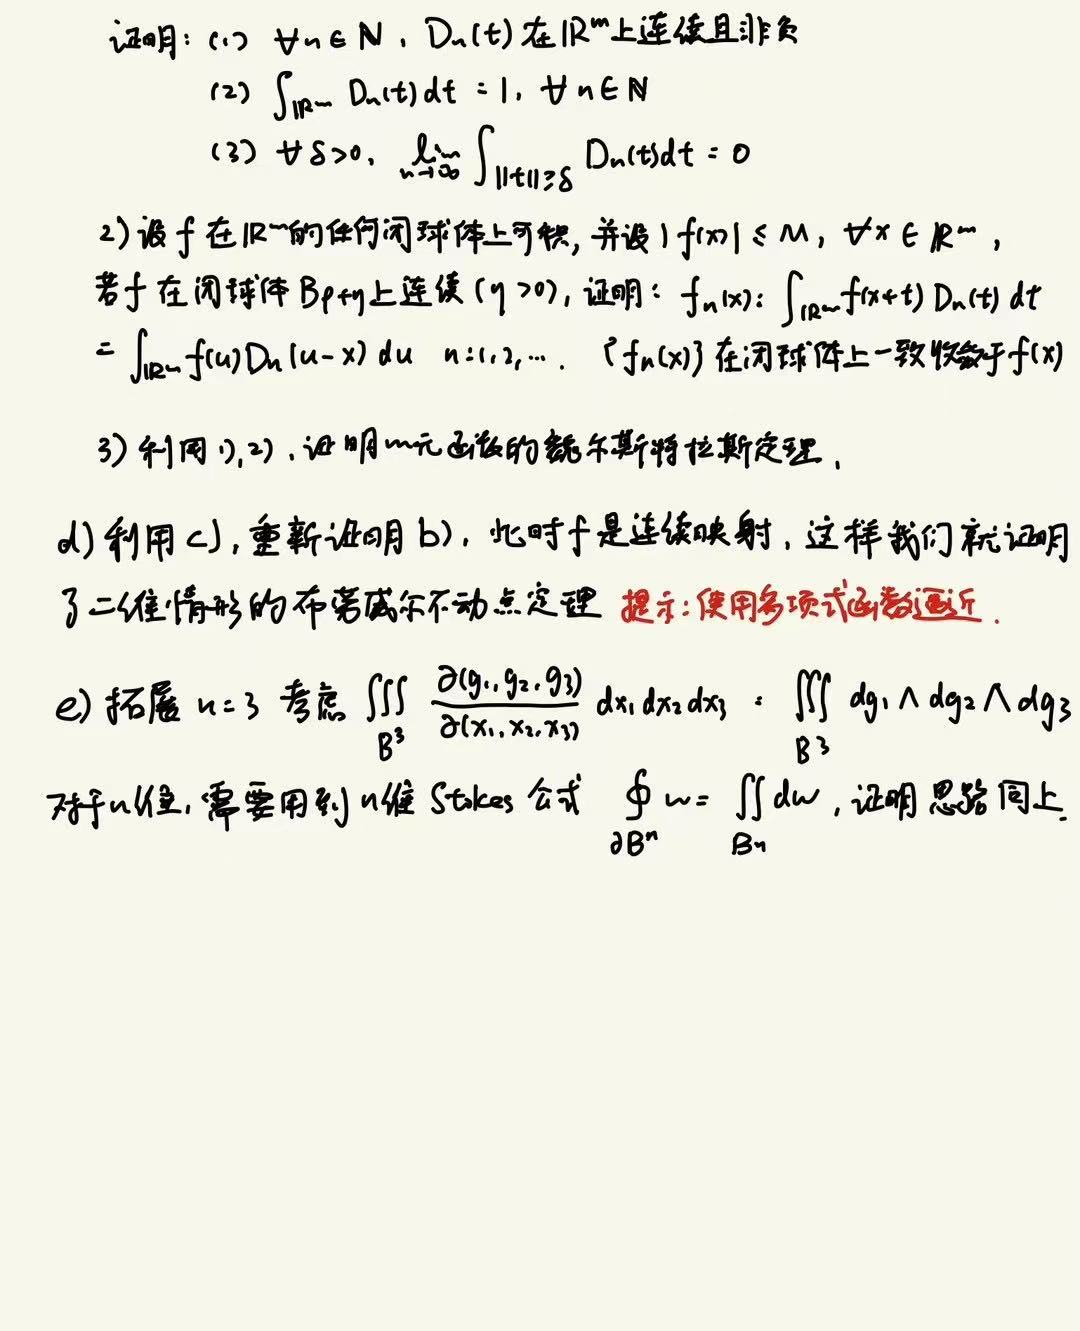 证明：(1) ∀n∈ℕ, Dn(t)在ℝᵐ上连续且非负
(2) ∫_{ℝᵐ} Dn(t)dt = 1, ∀n∈ℕ
(3) ∀δ>0, lim_{n→∞} ∫_{||t||≥δ} Dn(t)dt = 0
2) 设f在ℝᵐ的任何闭球体上可积, 并设|f(x)|≤M, ∀x∈ℝᵐ,
若f在闭球体 B_{ρ+η}上连续(η>0), 证明: fn(x): ∫_{ℝᵐ} f(x+t) Dn(t) dt
= ∫_{ℝᵐ} f(u) Dn(u-x) du n=1,2,…. {fn(x)}在闭球体上一致收敛于f(x)
3) 利用1),2), 证明m元函数的魏尔斯特拉斯定理.
d) 利用c), 重新证明b), 此时f是连续映射, 这样我们就证明
了二维情形的布劳威尔不动点定理 提示:使用多项式函数逼近.
e) 拓展 n=3 考虑 ∭_{B³} ∂(g₁,g₂,g₃)/∂(x₁,x₂,x₃) dx₁dx₂dx₃ = ∭_{B³} dg₁∧dg₂∧dg₃
对于n维, 需要用到n维 Stokes 公式 ∮_{∂Bⁿ} w = ∬_{Bn} dw, 证明思路同上.